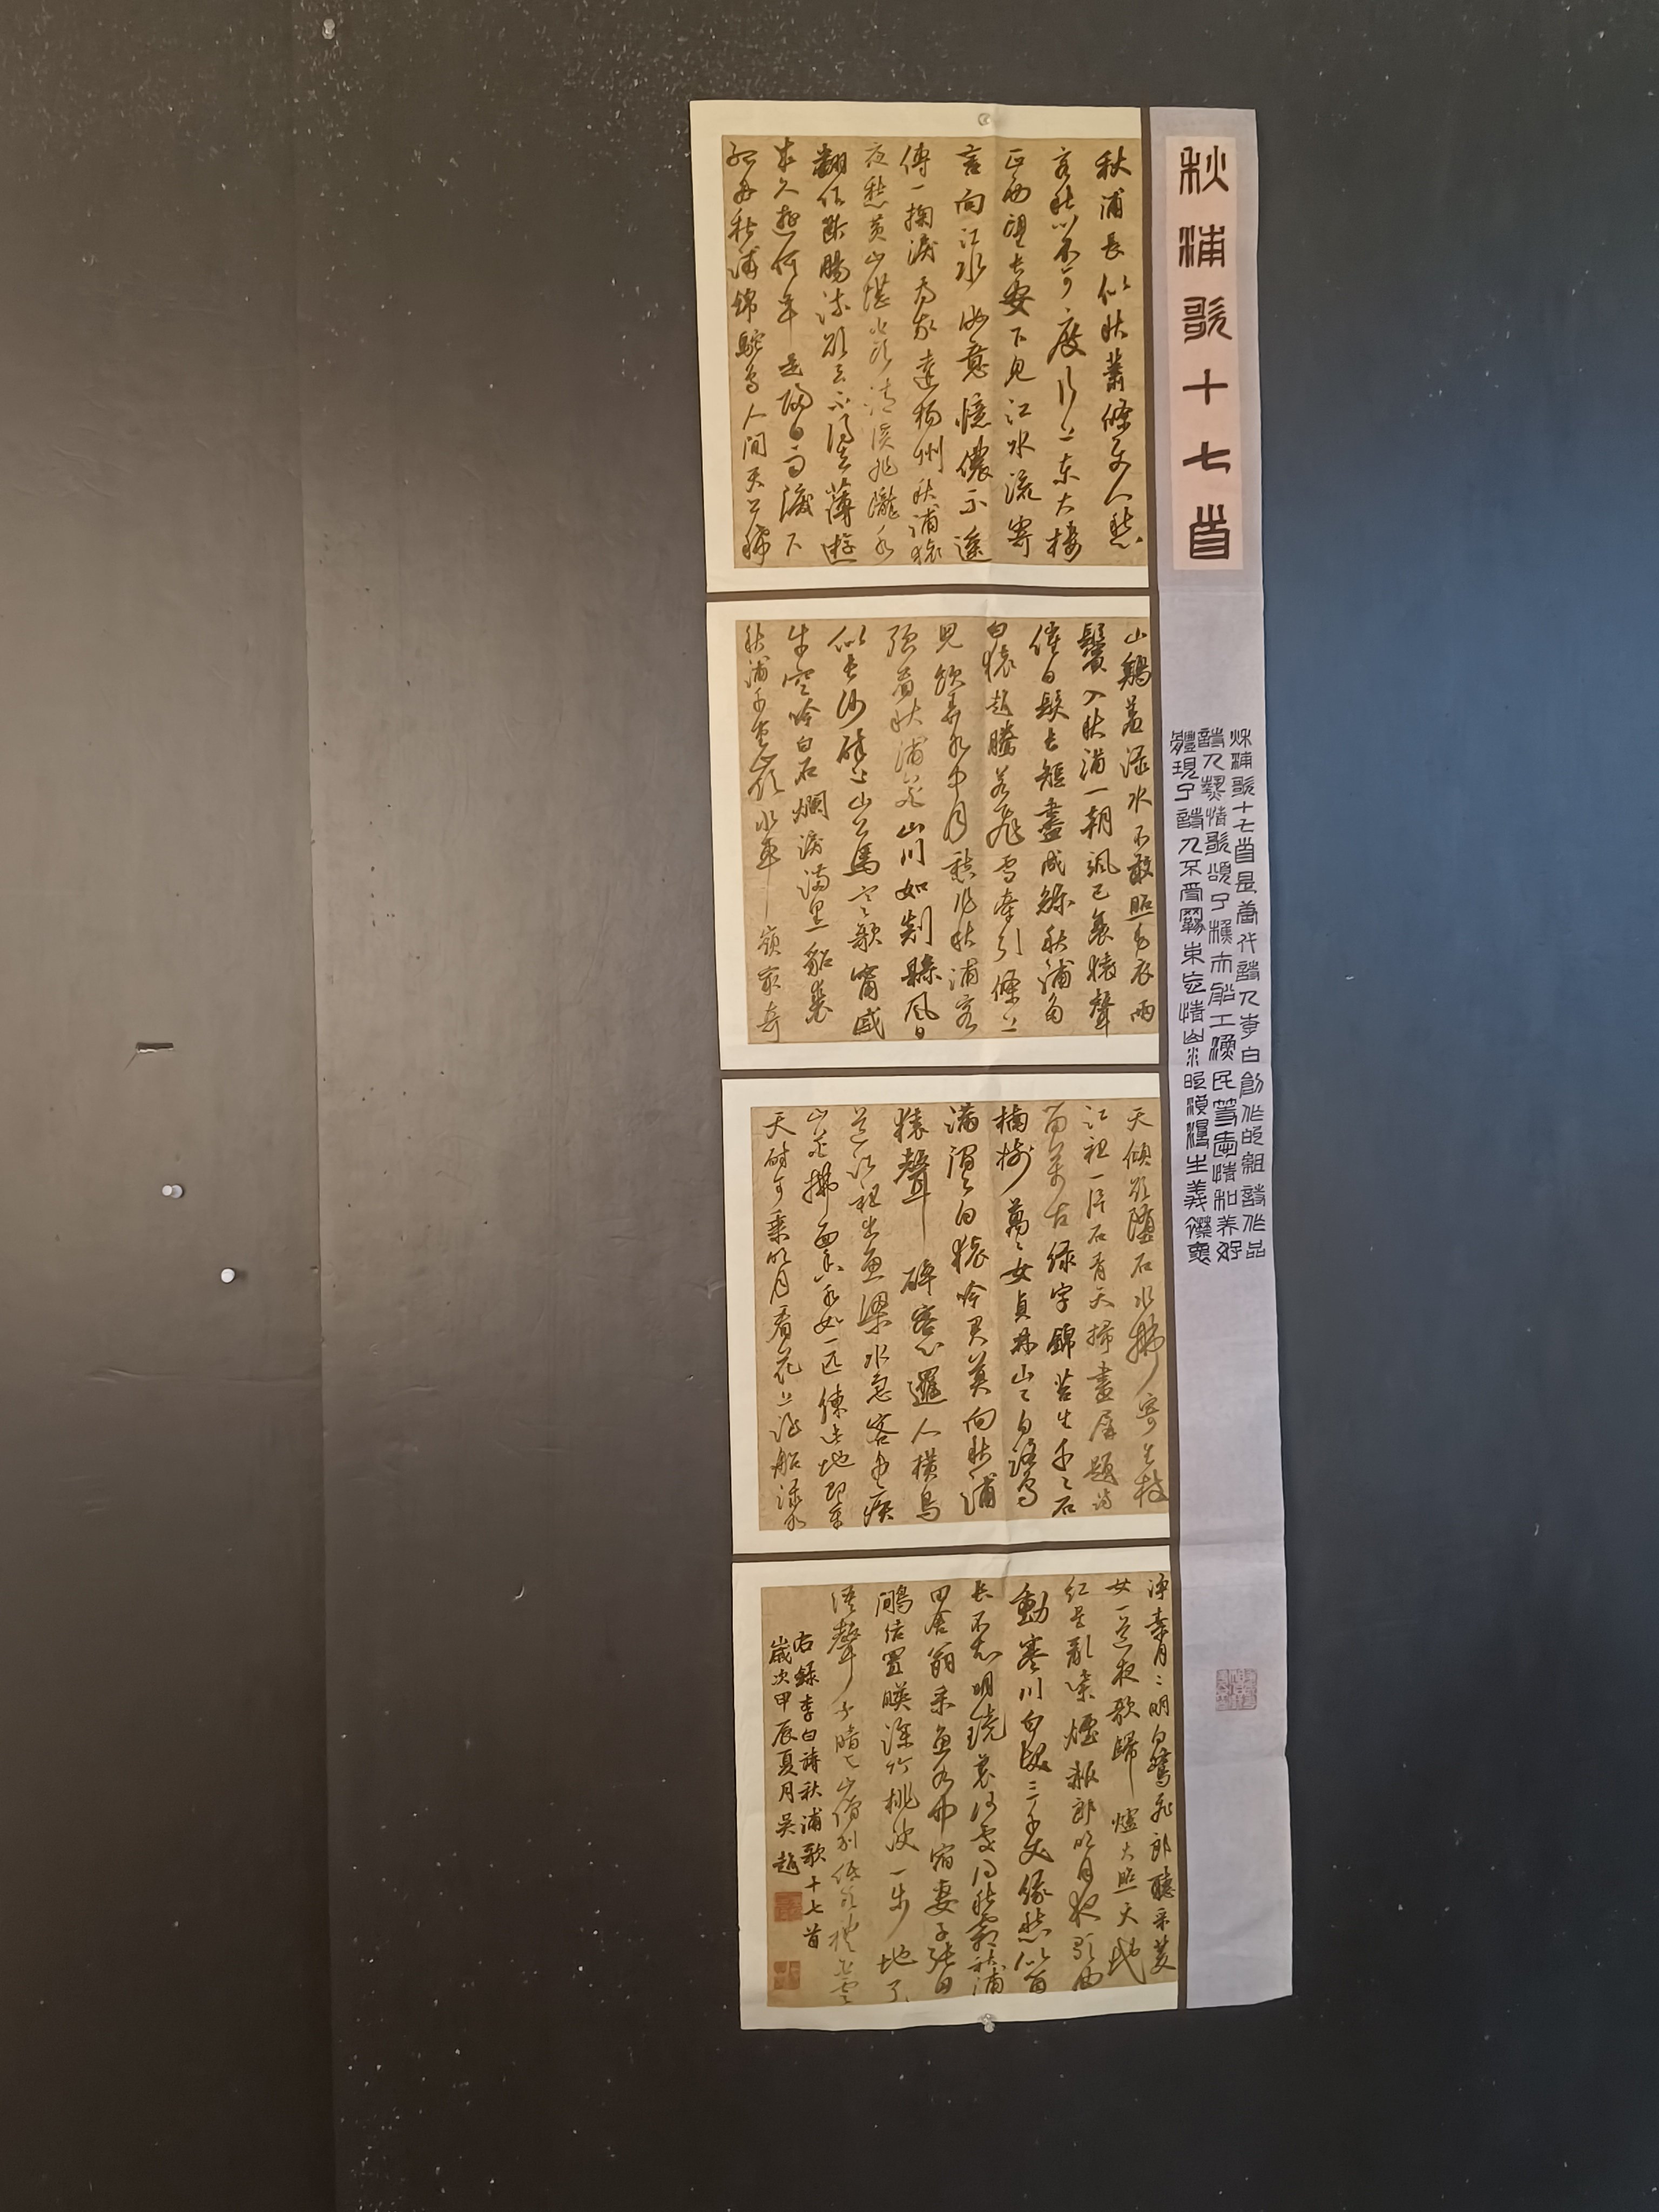 秋浦歌十七首
秋浦歌十七首是唐代詩人李白創作的組詩作品
詩人熱情歌頌了樵夫船工漁民等
體現了詩人不受羈束忘情山水
秋浦長似秋蕭條使人愁
客愁不可度行上東大樓
正西望長安下見江水流寄
言向江水汝意憶儂不遙
傳一掬淚為我達揚州秋浦猿
夜愁黃山堪白頭清溪非隴水
翻作斷腸流欲去不得去薄遊
成久遊何年是歸日雨淚下
孤舟秋浦錦鴕鳥人間天上稀
山鷄羞淥水不敢照毛衣兩
鬢入秋浦一朝颯已衰猿聲
催白髮長短盡成絲秋浦多
白猿超騰若飛雪牽引條上
兒飲弄水中月愁作秋浦客
強看秋浦花山川如剡縣風日
似長沙醉上山公馬寒歌甯戚
牛空吟白石爛淚滿黑貂裘
秋浦千重嶺水車嶺最奇
天傾欲墮石水拂寄生枝
江祖一片石青天掃畫屏題詩
留萬古綠字錦苔生千千石
楠樹萬萬女貞林山山白鷺
滿澗澗白猿吟君莫向秋浦
猿聲碎客心邏人橫鳥
道江祖出魚梁水急客舟疾
山花拂面香水如一匹練此地即平
天耐可乘明月看花上酒船淥水
淨素月月明白鷺飛郎聽采菱
女一道夜歌歸爐火照天地
紅星亂紫煙赧郎明月夜歌曲
動寒川白髮三千丈緣愁似箇
長不知明鏡裏何處得秋霜秋浦
田舍翁采魚水中宿妻子張白
鷴結罝映深竹桃波一步地了
語聲聞暗與山僧別低頭禮白雲
右錄李白詩秋浦歌十七首
歲次甲辰夏月吳